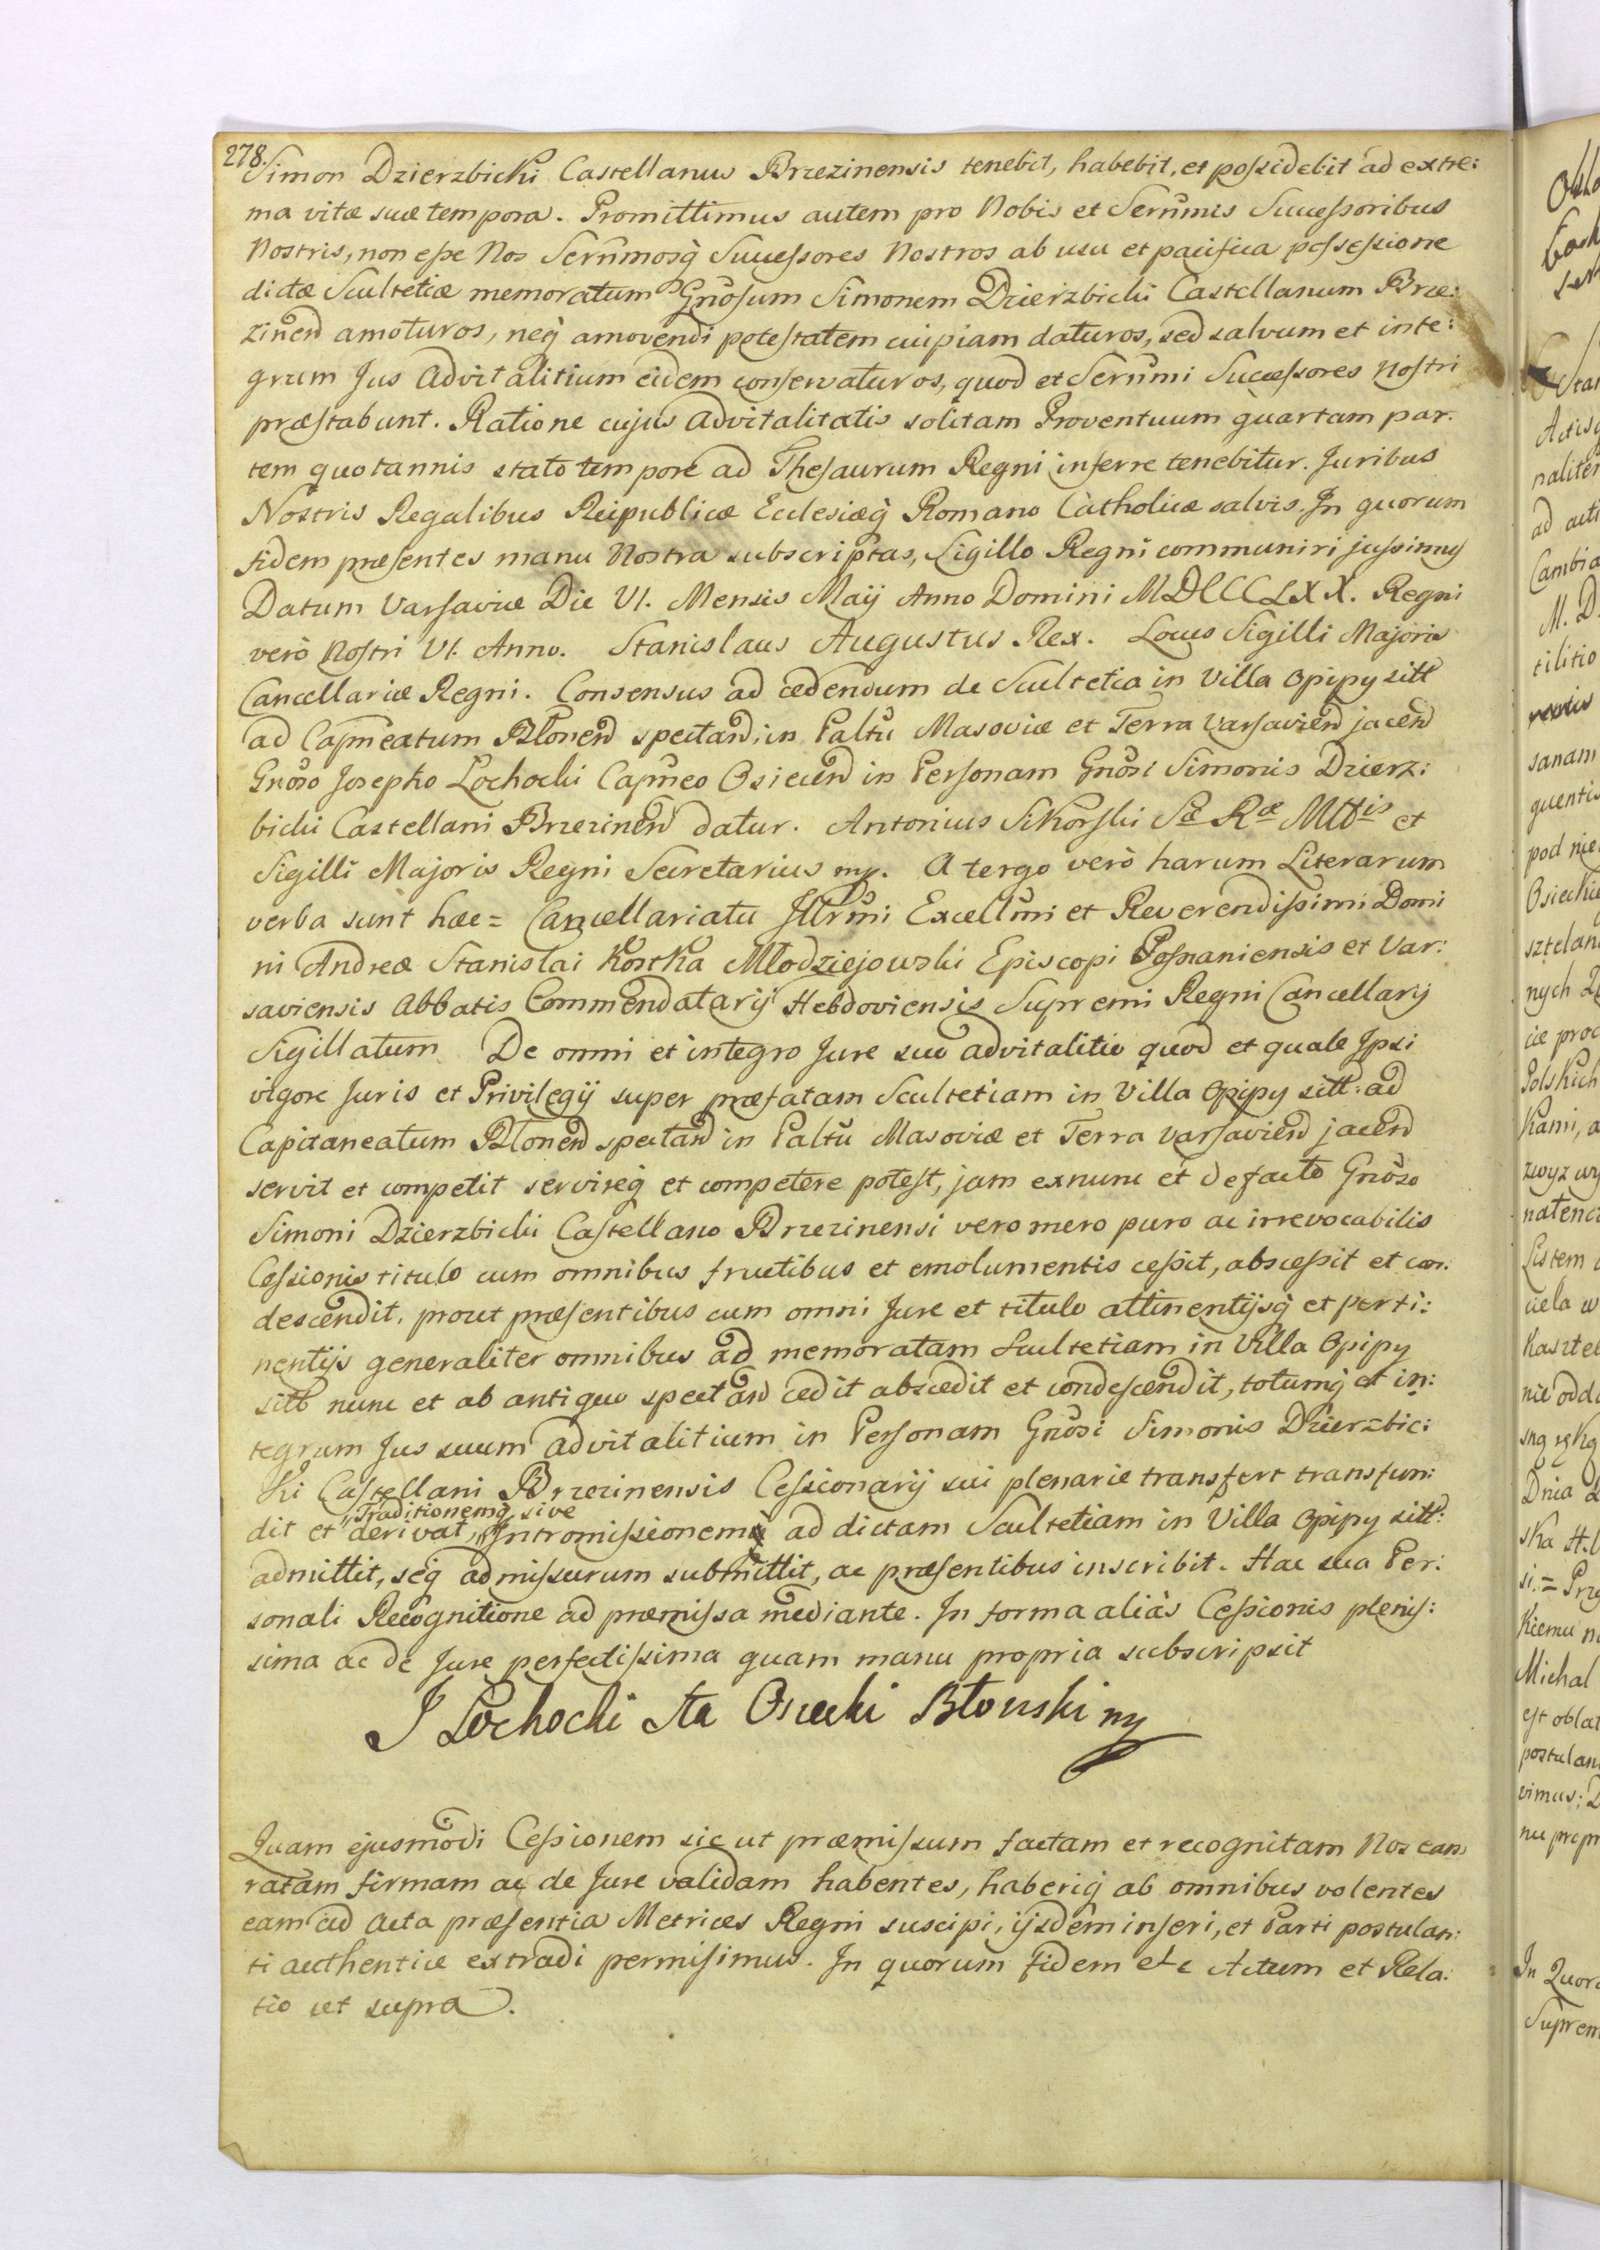 278.
Simon Dzierzbicki Castellanus Brzezinensis tenebit, habebit, et possidebit ad extre:
ma vitæ suæ tempora. Promittimus autem pro Nobis et Serumis Successoribus
Nostris, non esse Nos Serumosq̃ Successores Nostros ab usu et pacifica possessione
dictæ Scultetiæ memoratum Gnosum Simonem Dzierzbicki Castellanum Brze:
zinen̄ amoturos, neq̃ amovendi potestatem cuipiam daturos, sed salvum et inte:
grum Jus Advitalitium eidem conservaturos, quod et Serumi Successores nostri
præstabunt. Ratione cujus advitalitatis solitam Proventuum quartam par:
tem quotannis stato tempore ad Thesaurum Regni inferre tenebitur. Juribus
Nostris Regalibus Reipublicæ Ecclesiæq̃ Romano Catholicæ salvis. In quorum
fidem præsentes manu Nostra subscriptas, Sigillo Regni communiri jussimus
Datum Varsaviæ Die VI. Mensis Maÿ Anno Domini MDCCLXX. Regni
verò Nostri VI. Anno. Stanislaus Augustus Rex. Locus Sigilli Majoris
Cancellariæ Regni. Consensus ad cedendum de Scultetia in Villa Opipy sitt
ad Capneatum Błonen̄ spectan̄, in Paltu Masoviæ et Terra Varsavien̄ jacen̄
Gnoso Josepho Łochocki Capneo Osiecen̄ in Personam Gnosi Simonis Dzierz:
bicki Castellani Brzezinen̄ datur. Antonius Sikorski Sæ Ræ Mttis et
Sigilli Majoris Regni Secretarius mp. A tergo verò harum Literarum
verba sunt hæc = Cancellariatu Illrmi Excellmi et Reverendissimi Domi
ni Andreæ Stanislai Kostka Młodziejowski Episcopi Posnaniensis et Var:
saviensis Abbatis Commendatarÿ Hebdoviensis Supremi Regni Cancellarÿ
Sigillatum. De omni et integro Jure suo advitalitio quod et quale Ipsi
vigore Juris et Privilegÿ super præfatam Scultetiam in Villa Opipy sitt: ad
Capitaneatum Błonen̄ spectan̄ in Paltu Masoviæ et Terra Varsavien̄ jacen̄
servit et competit servireq̃ et competere potest, jam exnunc et defacto Gnoso
Simoni Dzierzbicki Castellano Brzezinensi vero mero puro ac irrevocabilis
Cessionis titulo cum omnibus fructibus et emolumentis cessit, abscessit et con:
descendit, prout præsentibus cum omni Jure et titulo attinentÿsq̃ et perti:
nentÿs generaliter omnibus ad memoratam Scultetiam in Villa Opipy
sitt nunc et ab antiquo spectan̄ cedit abscedit et condescendit, totumq̃ et in:
tegrum Jus suum advitalitium in Personam Gnosi Simonis Dzierzbic:
ki Castellani Brzezinensis Cessionarÿ sui plenarie transfert transfun:
dit et derivat, "Traditionemq̃ sive "Intromissionem ad dictam Scultetiam in Villa Opipy sitt:
admittit, seq̃ admissurum submittit, ac præsentibus inscribit. Hac sua Per:
sonali Recognitione ad præmissa mediante. In forma aliàs Cessionis plenis:
sima ac de Jure perfectissima quam manu propria subscripsit
J Łochocki Sta Osiecki Błonski mp
Quam ejusmodi Cessionem sic ut præmissum factam et recognitam Nos eam
ratam firmam ac de Jure validam habentes, haberiq̃ ab omnibus volentes
eam ad Acta præsentia Metrices Regni suscipi, ÿsdem inseri, et Parti postulan:
ti authentice extradi permisimus. In quorum fidem etc Actum et Rela:
tio ut supra.